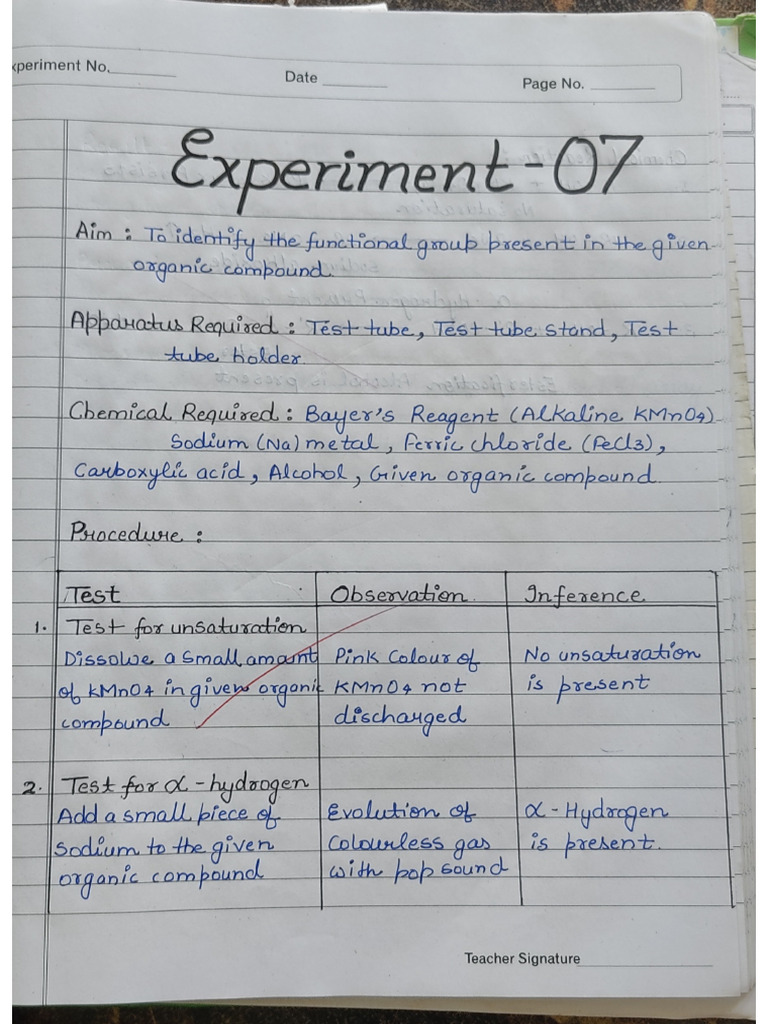 xperiment No.
Date
Page No.
Experiment-07
Aim : To identify the functional group present in the given
organic compound.
Apparatus Required : Test tube, Test tube stand, Test
tube holder.
Chemical Required : Bayer's Reagent (Alkaline KMnO4)
Sodium (Na) metal, Ferric chloride (FeCl3),
Carboxylic acid, Alcohol, Given organic compound.
Procedure :
Test Observation Inference
1. Test for unsaturation
Dissolve a small amount Pink Colour of No unsaturation
of KMnO4 in given organic KMnO4 not is present
compound discharged
2. Test for α-hydrogen
Add a small piece of Evolution of α-Hydrogen
sodium to the given Colourless gas is present.
organic compound with pop sound
Teacher Signature